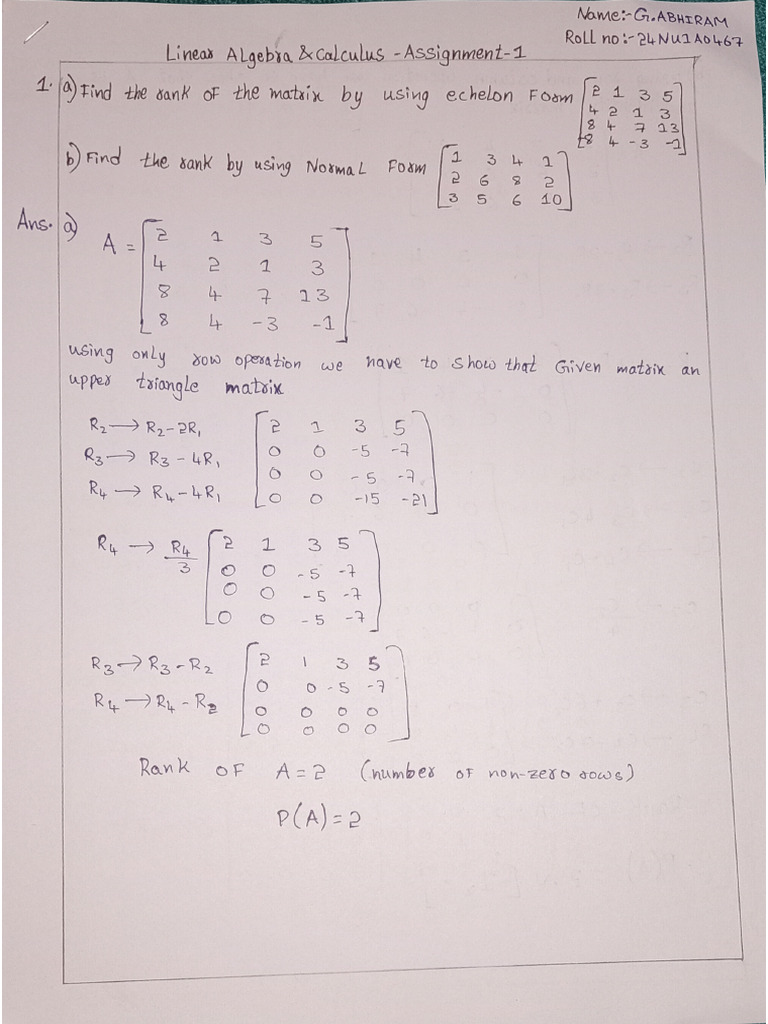 Name:- G.ABHIRAM
Roll no:- 24NU1A0467
Linear Algebra & Calculus - Assignment-1
1. a) Find the rank of the matrix by using echelon Form [2 1 3 5
4 2 1 3
8 4 7 13
8 4 -3 -1]
b) Find the rank by using Normal Form [1 3 4 1
2 6 8 2
3 5 6 10]
Ans. a) A = [2 1 3 5
4 2 1 3
8 4 7 13
8 4 -3 -1]
using only row operation we have to show that Given matrix an
upper triangle matrix
R2 → R2-2R1 [2 1 3 5
R3 → R3-4R1 0 0 -5 -7
0 0 -5 -7
R4 → R4-4R1 0 0 -15 -21]
R4 → R4/3 [2 1 3 5
0 0 -5 -7
0 0 -5 -7
0 0 -5 -7]
R3 → R3-R2 [2 1 3 5
0 0 -5 -7
R4 → R4-R2 0 0 0 0
0 0 0 0]
Rank of A=2 (number of non-zero rows)
P(A)=2